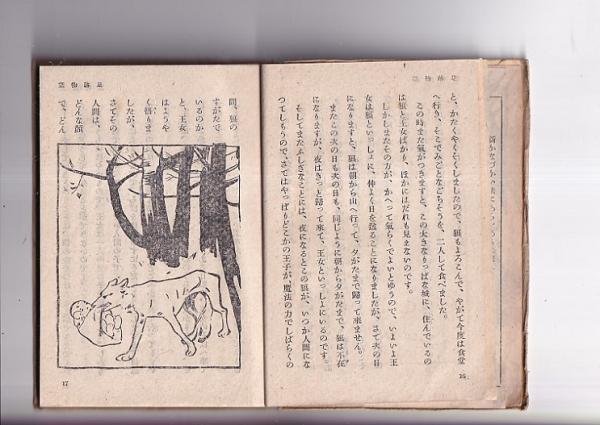 と、かたくやくそくしましたので、狼もよろこんで、やがて今度は食堂
へ行き、そこでみごとなごちそうを、二人して食べました。
この時また氣がつきますと、この大きなりっぱな城に、住んでいるの
は狼と王女ばかり、ほかにはだれも見えないのです。
しかしまたその方が、かへって氣らくでよいとゆうので、いよいよ王
女は狼といっしょに、仲よく日を送ることになりましたが、さて次の日
になりますと、狼は朝から山へ行って、夕がたまで歸って來ません。
またこの次の日も次の日も、同じように朝から夕がたまで、狼は不在
になりますが、夜はきっと歸って來て、王女といっしょにいるのです。
しかしまたふしぎなことには、夜になるとこの狼が、いつか人間にな
つてしもうので、さてはやっぱりどこかの王子が、魔法の力でしばらくの
16
間、狼の
すがたで
いるのか
と、王女
はようや
く悟りま
したが、
さてその
人間は、
どんな顔
で、どん
17